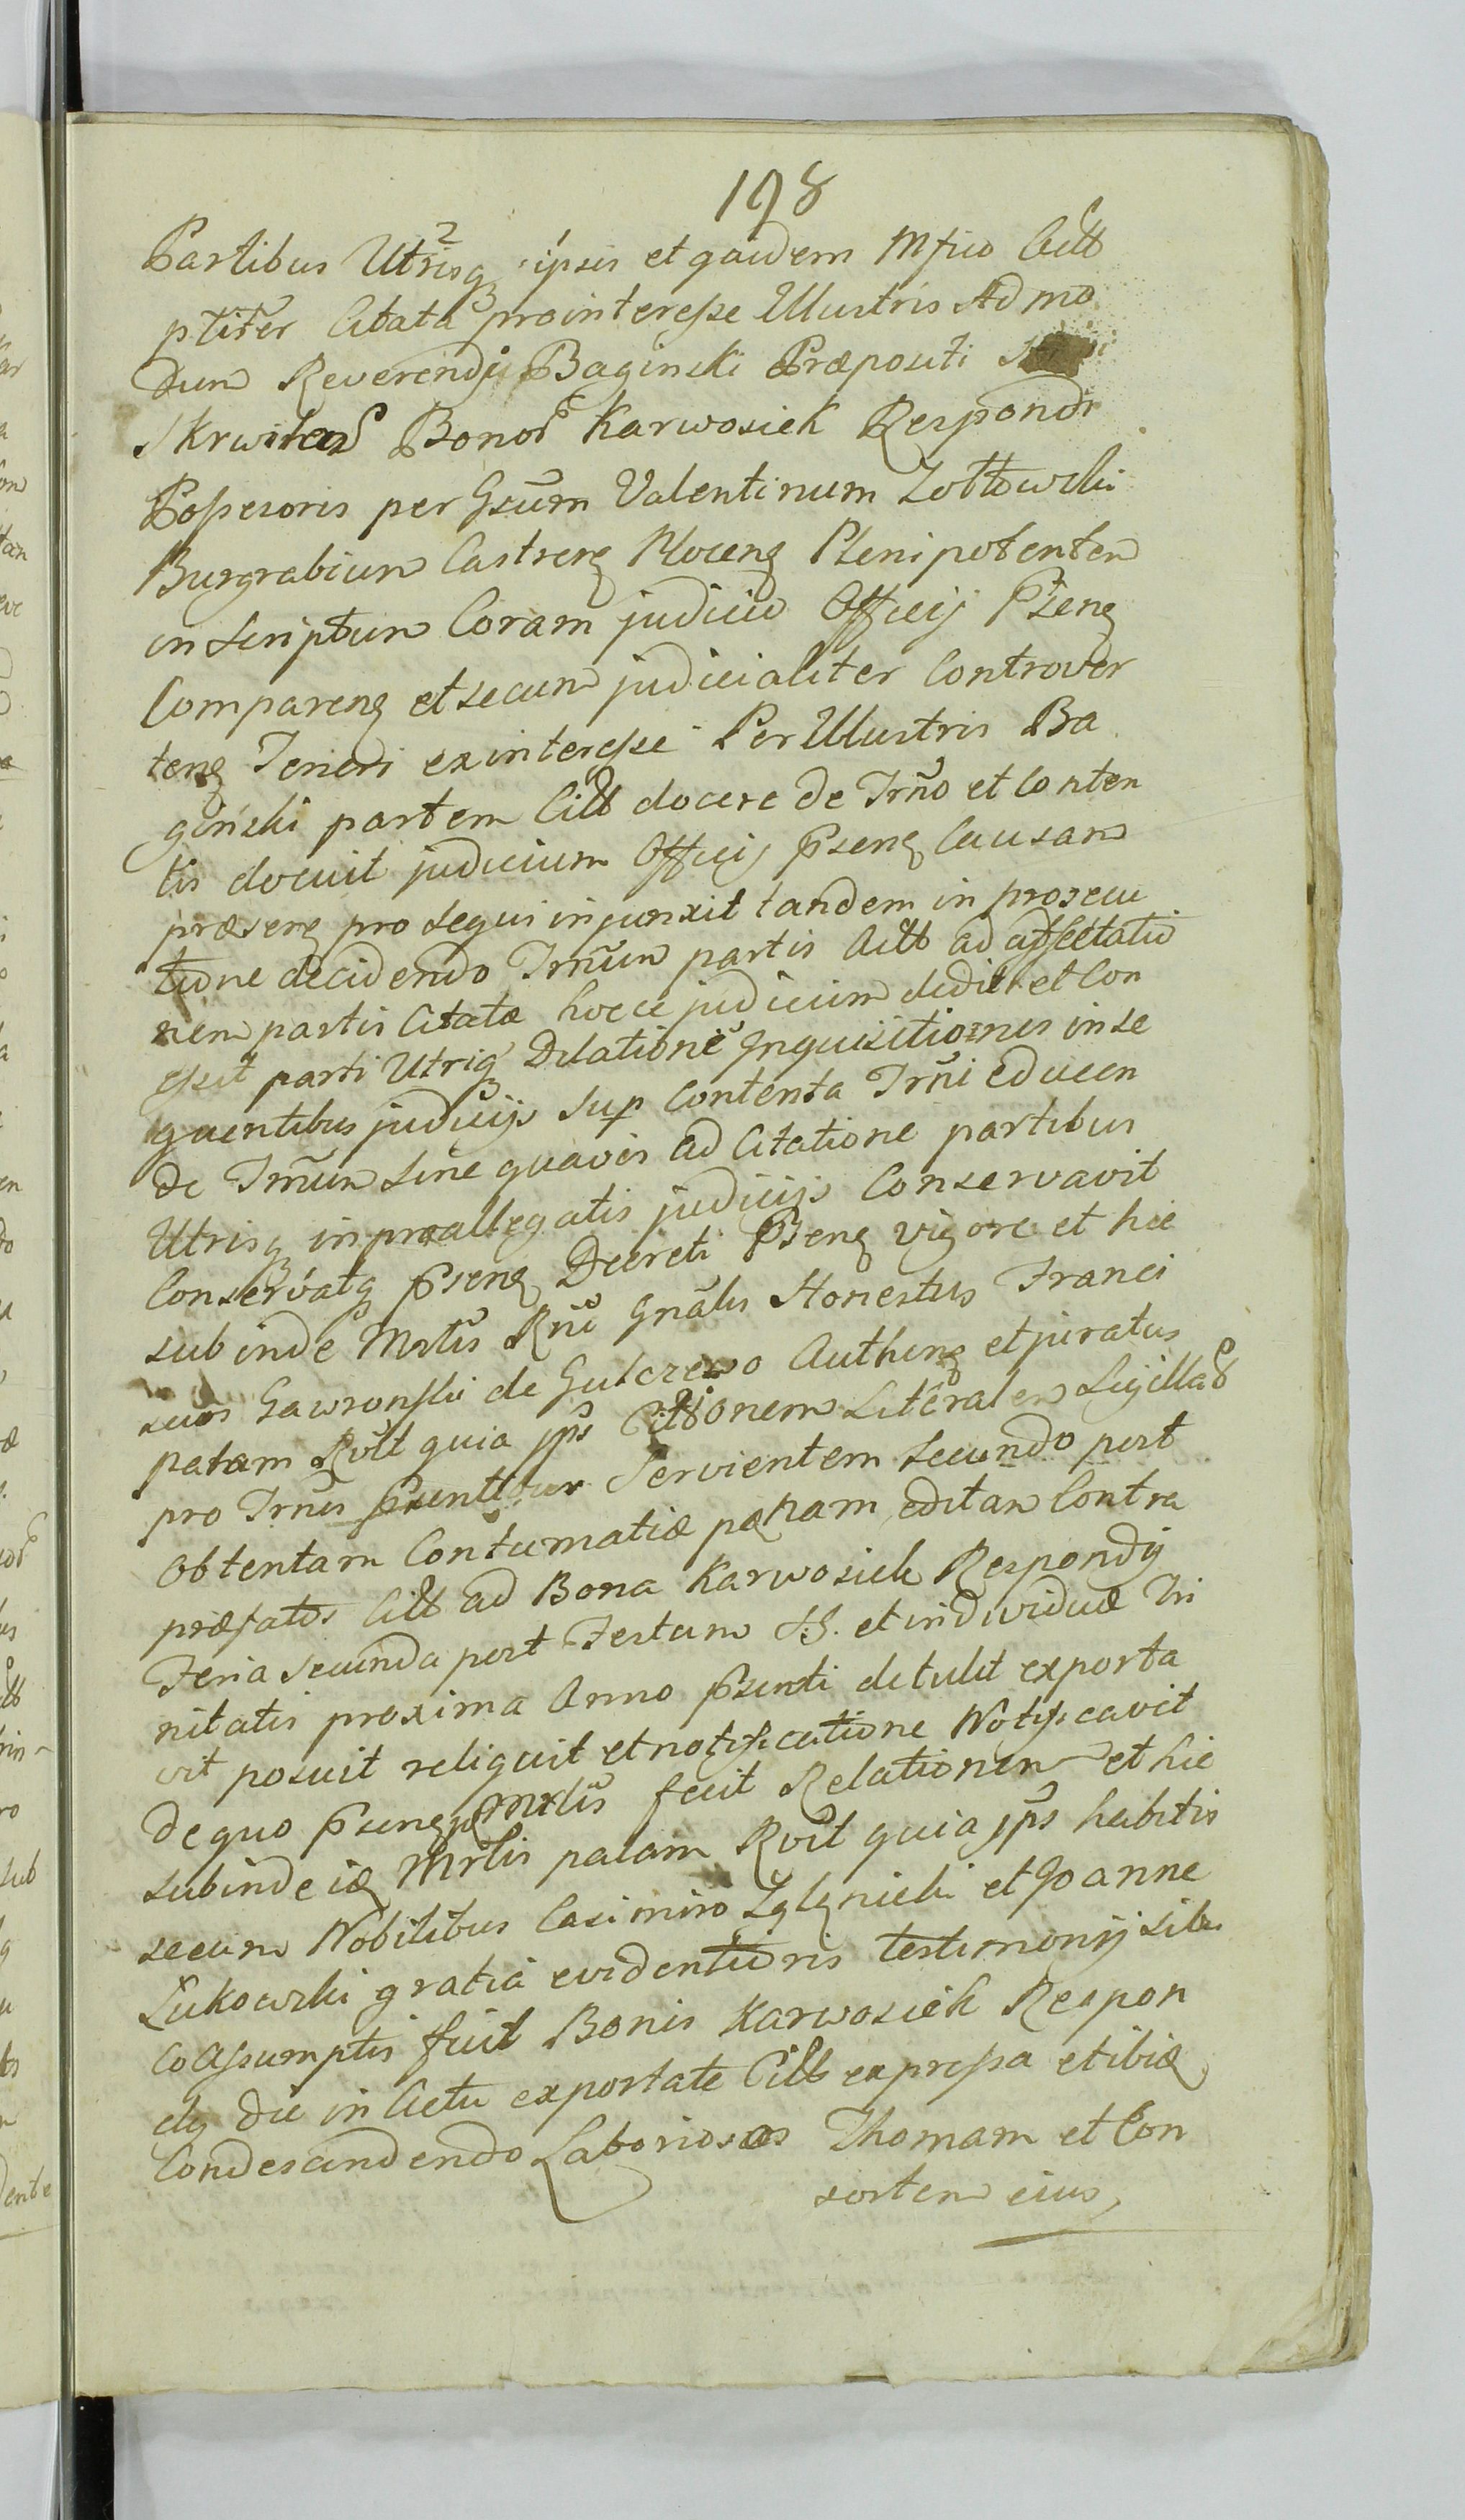 198
Partibus Utrisq ipsis et quidem Mfico Citt
ptiter Citata prointeresse Illustris Admo
dum Reverendi Baginski Præpositi
Skrwilen Bonor Karwosiek Respondr
Possesoris per Gsum Valentinum Zołtowski
Burgrabium Castren Plocen Plenipotenten
inscriptum Coram judicio Officij Psenz
Comparenz et secum judicialiter Controver
tenz Teneri exinteresse Per Illustris Ba
ginski partem Citt docere de Trno et Conten
tis docuit judicium Officij Psenz Causam
præsenz prosequi injunxit tandem in prosecu
tione decidendo Trnum partis Citt ad affectatio
nem partis Citatæ hocce judicium dedit et Con
cessit parti Utriq Dilatione Inquisitiones inse
quentibus judicijs sup Contenta Trni educen
de Trnum sine quavis ad Citatione partibus
Utrisq inpræallegatis judicijs Conservavit
Conservatq psenz Decreti Psenz vigore et hic
subinde Mrlis Rni Gnalis Honestus Franci
scus Gawronski de Gulczewo Authenz et juratus
palam Rvlt quia jps Cittionem Literalem Sigillad
pro Trnis psentibus Servientem secundo post
Obtentam Contumatiæ pænam editam Contra
præfatos Citt ad Bona Karwosiek Respondij
Feria secunda post Festum SS. et individuæ Tri
nitatis proxima Anno psenti detulit exporta
vit posuit reliquit et notificatione Notificavit
de quo psenz Mrlis fecit Relationem et hic
subinde idz Mrlis palam Rvlt quia jps habitis
secum Nobilibus Casimiro Zglenicki et Joanne
Łukowski gratia evidentioris testimonij sibi
coassumptis fuit Bonis Karwosiek Respon
dij die in Actu exportate Citt expressa et ibidz
Condescendendo Laboriosos Thomam et Con
sortem eius,